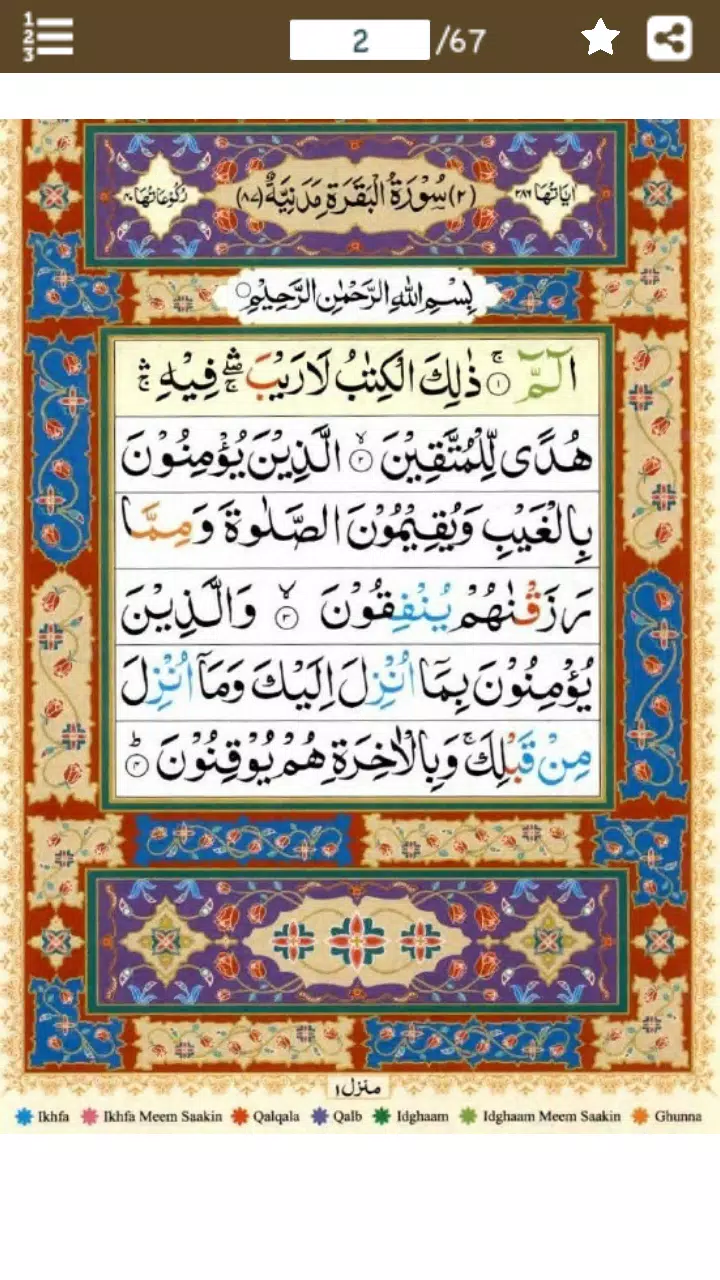 1
2
3
2 /67
اٰيَاتُهَا ٢٨٦ (٢) سُوْرَةُ الْبَقَرَةِ مَدَنِيَّةٌ (٨٧) رُكُوْعَاتُهَا ٤٠
بِسْمِ اللّٰهِ الرَّحْمٰنِ الرَّحِيْمِ
الٓمّٓ ۚ ١ ذٰلِكَ الْكِتٰبُ لَا رَيْبَ ۛۚ فِيْهِ ۛۚ
هُدًى لِّلْمُتَّقِيْنَ ۙ ٢ الَّذِيْنَ يُؤْمِنُوْنَ
بِالْغَيْبِ وَيُقِيْمُوْنَ الصَّلٰوةَ وَمِمَّا
رَزَقْنٰهُمْ يُنْفِقُوْنَ ۙ ٣ وَالَّذِيْنَ
يُؤْمِنُوْنَ بِمَآ اُنْزِلَ اِلَيْكَ وَمَآ اُنْزِلَ
مِنْ قَبْلِكَ ۚ وَبِالْاٰخِرَةِ هُمْ يُوْقِنُوْنَ ؕ ٤
منزل ١
Ikhfa Ikhfa Meem Saakin Qalqala Qalb Idghaam Idghaam Meem Saakin Ghunna